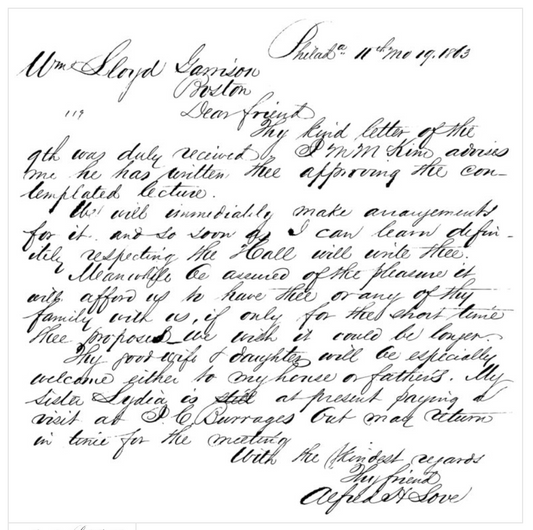 Philada 11th Mo 19. 1863
Wm Lloyd Garrison
Boston
119
Dear friend
Thy kind letter of the
9th was duly received J M McKim advises
me he has written thee approving the con-
templated lecture.
We will immediately make arrangements
for it and so soon as I can learn defin-
itely respecting the Hall will write thee.
Meanwhile be assured of the pleasure it
will afford us to have thee or any of thy
family with us, if only for the short time
thee proposes we wish it could be longer.
Thy good wife & daughter will be especially
welcome either to my house or father's. My
sister Lydia is still at present paying a
visit at J. C. Burrages but may return
in time for the meeting
With the kindest regards
Thy friend
Alfred H Love